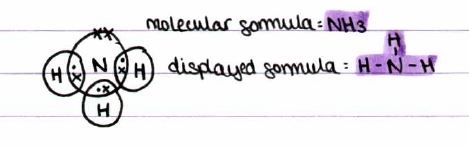 molecular formula = NH3
H N H
H
displayed formula = H - N - H
H